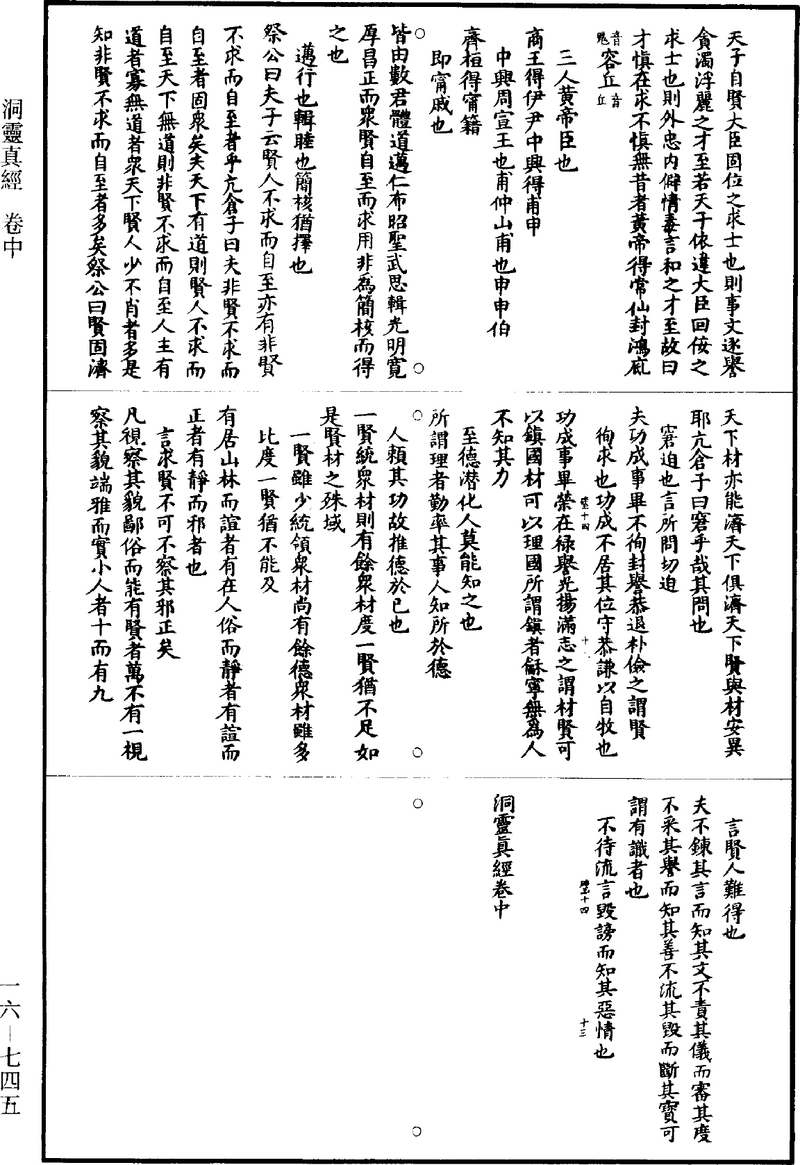 天子自賢大臣固位之求士也則事文逐譽
貪濁浮麗之才至若天子依違大臣回佞之
求士也則外忠內僻情毒言和之才至故曰
才慎在求不慎無昔者黃帝得常仙封鴻庬
音鬼容丘音丘
三人黃帝臣也
商王得伊尹中興得甫申
中興周宣王也甫仲山甫也申申伯
齊桓得甯籍
即甯戚也
皆由數君體道邁仁布昭聖武思輯光明寬
厚昌正而衆賢自至而求用非爲簡核而得
之也
邁行也輯睦也簡核猶擇也
祭公曰夫子云賢人不求而自至亦有非賢
不求而自至者乎亢倉子曰夫非賢不求而
自至者固衆矣夫天下有道則賢人不求而
自至天下無道則非賢不求而自至人主有
道者寡無道者衆天下賢人少不肖者多是
知非賢不求而自至者多矣祭公曰賢固濟
天下材亦能濟天下俱濟天下賢與材安異
耶亢倉子曰窘乎哉其問也
窘迫也言所問切迫
夫功成事畢不徇封譽恭退朴儉之謂賢
徇求也功成不居其位守恭謙以自牧也
功成事畢榮在祿譽光揚滿志之謂材賢可
以鎮國材可以理國所謂鎮者龢寧無爲人
不知其力
至德潜化人莫能知之也
所謂理者勤率其事人知所於德
人賴其功故推德於已也
一賢統衆材則有餘衆材度一賢猶不足如
是賢材之殊域
一賢雖少統領衆材尚有餘德衆材雖多
比度一賢猶不能及
有居山林而諠者有在人俗而靜者有諠而
正者有靜而邪者也
言求賢不可不察其邪正矣
凡視察其貌鄙俗而能有賢者萬不有一視
察其貌端雅而實小人者十而有九
言賢人難得也
夫不鍊其言而知其文不責其儀而審其度
不采其譽而知其善不流其毀而斷其實可
謂有識者也
不待流言毀謗而知其惡情也
十三
洞靈真經卷中
洞靈真經 卷中
一六—七四五